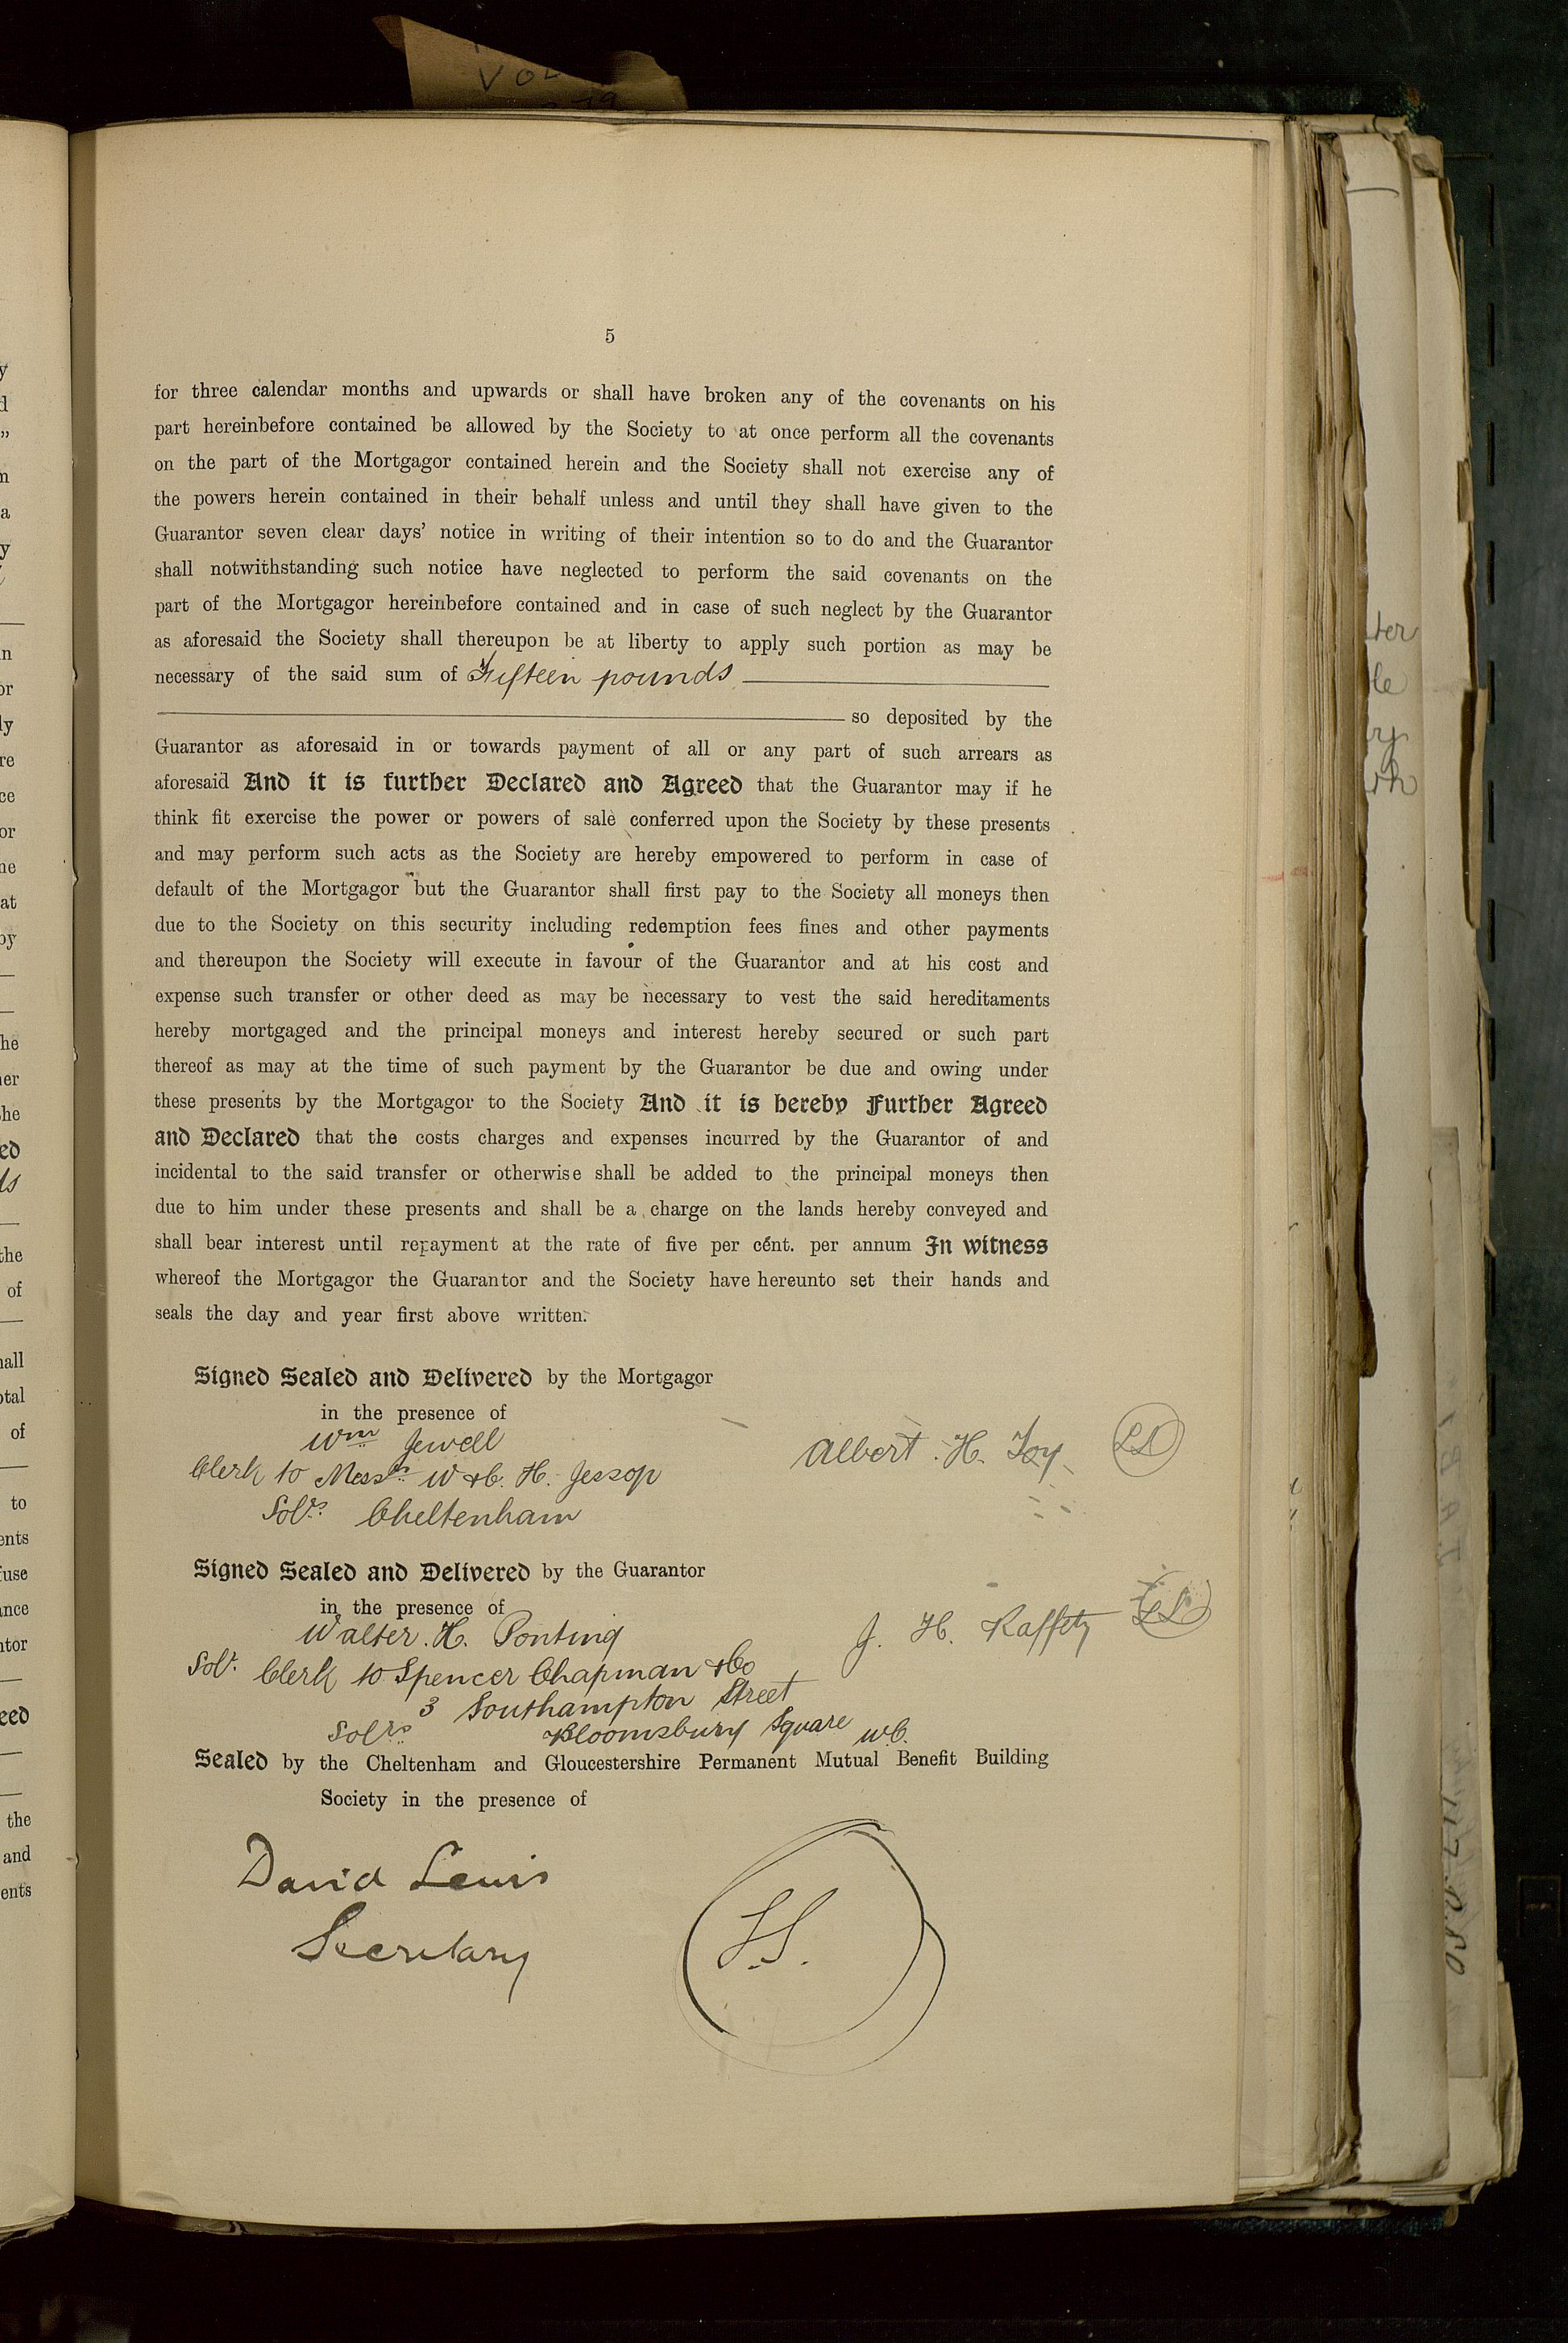 VOL
5
for three calendar months and upwards or shall have broken any of the covenants on his
part hereinbefore contained be allowed by the Society to at once perform all the covenants
on the part of the Mortgagor contained herein and the Society shall not exercise any of
the powers herein contained in their behalf unless and until they shall have given to the
Guarantor seven clear days' notice in writing of their intention so to do and the Guarantor
shall notwithstanding such notice have neglected to perform the said covenants on the
part of the Mortgagor hereinbefore contained and in case of such neglect by the Guarantor
as aforesaid the Society shall thereupon be at liberty to apply such portion as may be
necessary of the said sum of Fifteen pounds
so deposited by the
Guarantor as aforesaid in or towards payment of all or any part of such arrears as
aforesaid And it is further Declared and Agreed that the Guarantor may if he
think fit exercise the power or powers of sale conferred upon the Society by these presents
and may perform such acts as the Society are hereby empowered to perform in case of
default of the Mortgagor but the Guarantor shall first pay to the Society all moneys then
due to the Society on this security including redemption fees fines and other payments
and thereupon the Society will execute in favour of the Guarantor and at his cost and
expense such transfer or other deed as may be necessary to vest the said hereditaments
hereby mortgaged and the principal moneys and interest hereby secured or such part
thereof as may at the time of such payment by the Guarantor be due and owing under
these presents by the Mortgagor to the Society And it is hereby Further Agreed
and Declared that the costs charges and expenses incurred by the Guarantor of and
incidental to the said transfer or otherwise shall be added to the principal moneys then
due to him under these presents and shall be a charge on the lands hereby conveyed and
shall bear interest until repayment at the rate of five per cent. per annum In witness
whereof the Mortgagor the Guarantor and the Society have hereunto set their hands and
seals the day and year first above written.
Signed Sealed and Delivered by the Mortgagor
in the presence of
Wm Jewell
Clerk to Messrs W & C. H. Jessop
Solrs. Cheltenham
Albert . H. Toy LS
Signed Sealed and Delivered by the Guarantor
in the presence of
Walter. H. Ponting
Solr. Clerk to Spencer Chapman & Co
3 Southampton Street
Solrs Bloomsbury Square W.C.
J. H. Raffety LS
Sealed by the Cheltenham and Gloucestershire Permanent Mutual Benefit Building
Society in the presence of
David Lewis
Secretary
L.S.